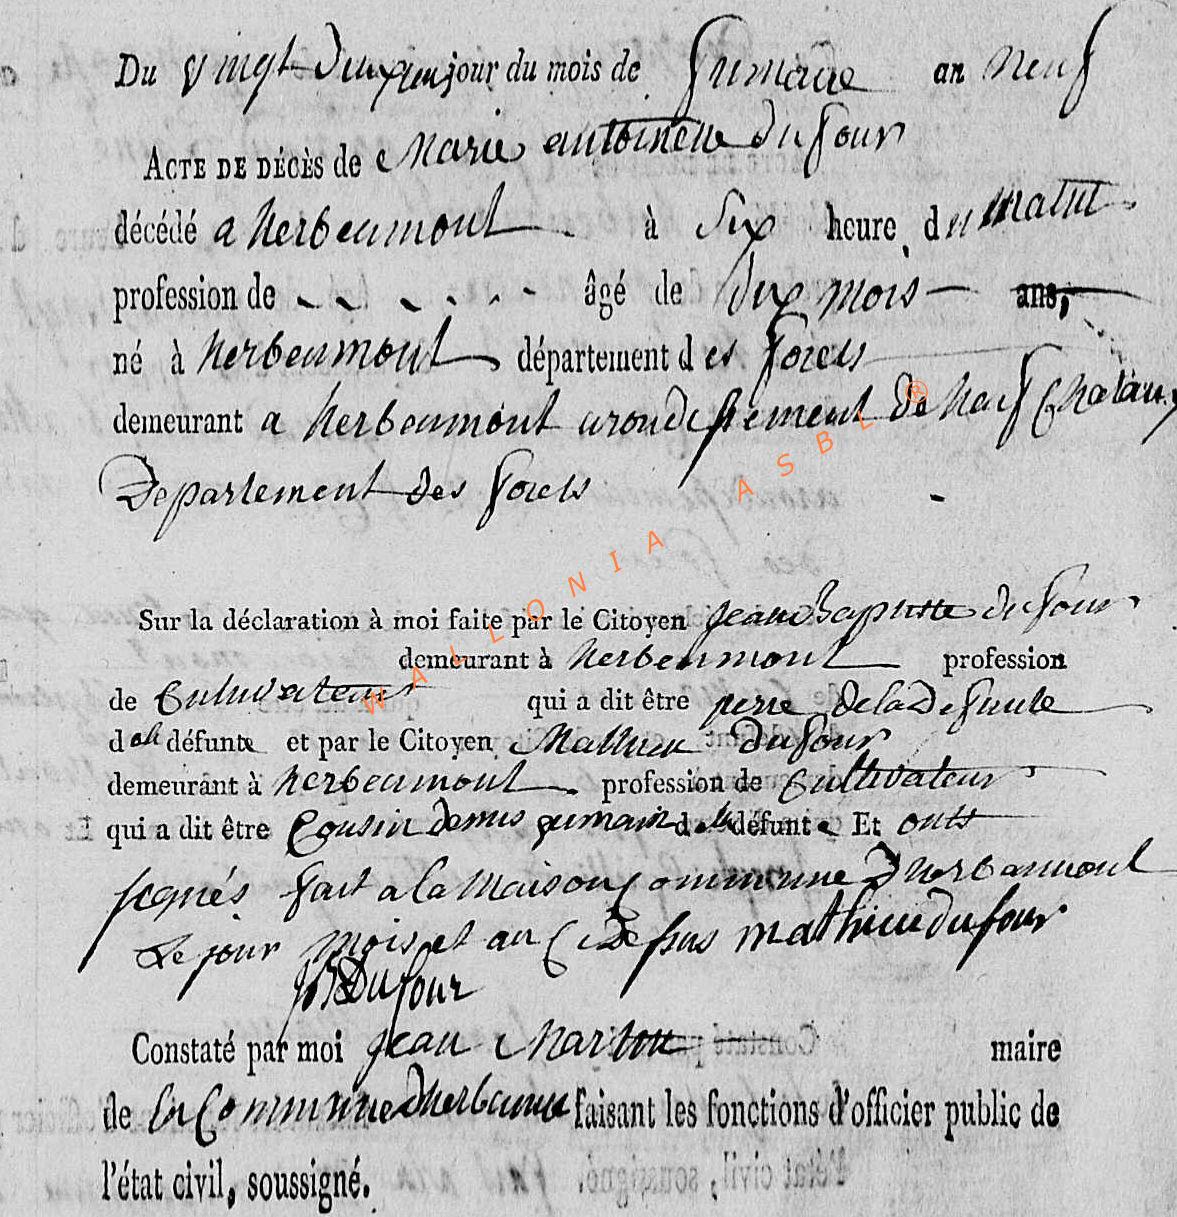 Du vingt deuxiem jour du mois de frimaire an neuf
ACTE DE DÉCÈS de Marie antoinette du four
décédé a herbeumont à six heure du matin
profession de - - - - - - âgé de dix mois — ans,
né à herbeumont département des forets
demeurant a herbeumont arondissement de neuf Chatau
Departement des forets
Sur la déclaration à moi faite par le Citoyen jean Baptiste du four
demeurant à herbeumont profession
de Cultivateur qui a dit être pere dela defunte
d ela défunte et par le Citoyen Mathieu du four
demeurant à herbeumont profession de Cultivateur
qui a dit être Cousin germain d ela défunte Et onts
signés fait a la maison Commune d'herbeumont
Le jour mois et an Ci dessus mathieu du four
Dufour
Constaté par moi jean maire
de la Commune d'herbeumont faisant les fonctions d'officier public de
l'état civil, soussigné.
WALLONIA ASBL ®